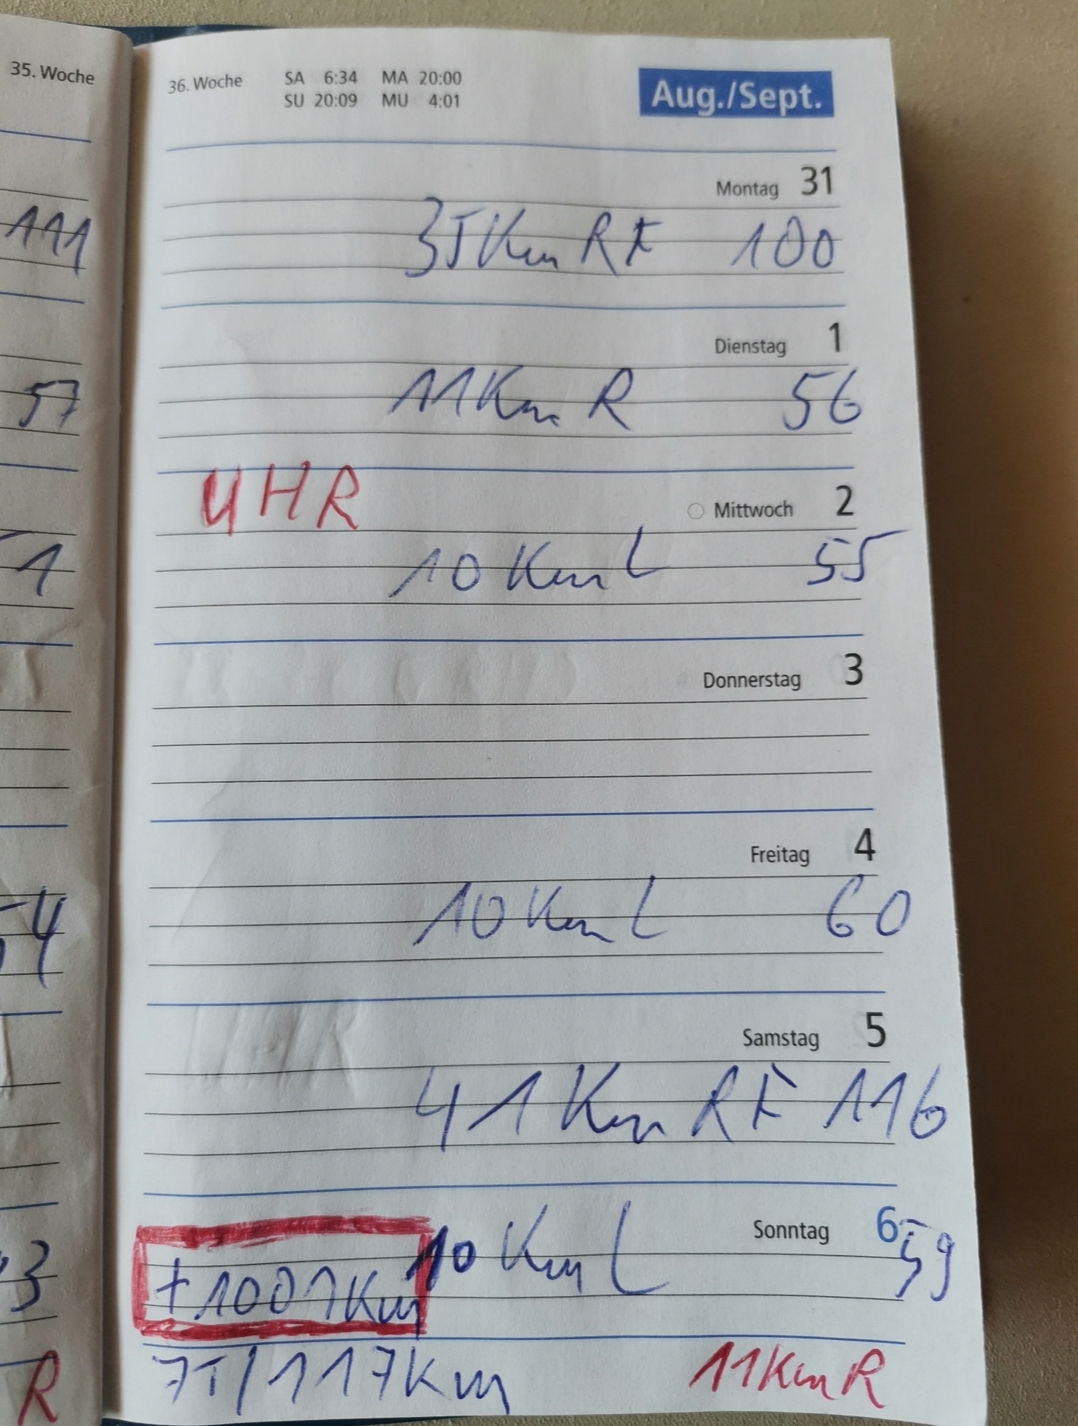 35. Woche
111
57
1
54
3
R
36. Woche SA 6:34 MA 20:00
SU 20:09 MU 4:01
Aug./Sept.
Montag 31
35Km RF 100
Dienstag 1
11Km R 56
UHR
Mittwoch 2
10 Km L 55
Donnerstag 3
Freitag 4
10 Km L 60
Samstag 5
41 Km RF 116
Sonntag 6
10 Km L 59
+1001Km
7T/117Km 11Km R